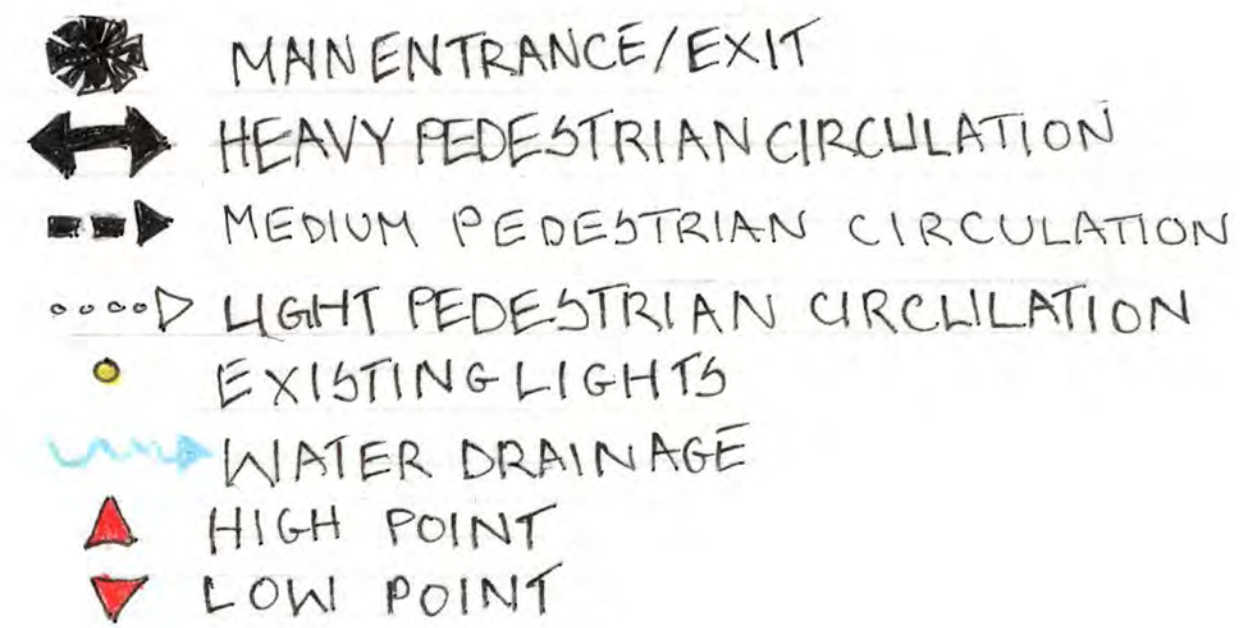 MAIN ENTRANCE/EXIT
HEAVY PEDESTRIAN CIRCULATION
MEDIUM PEDESTRIAN CIRCULATION
LIGHT PEDESTRIAN CIRCULATION
EXISTING LIGHTS
WATER DRAINAGE
HIGH POINT
LOW POINT